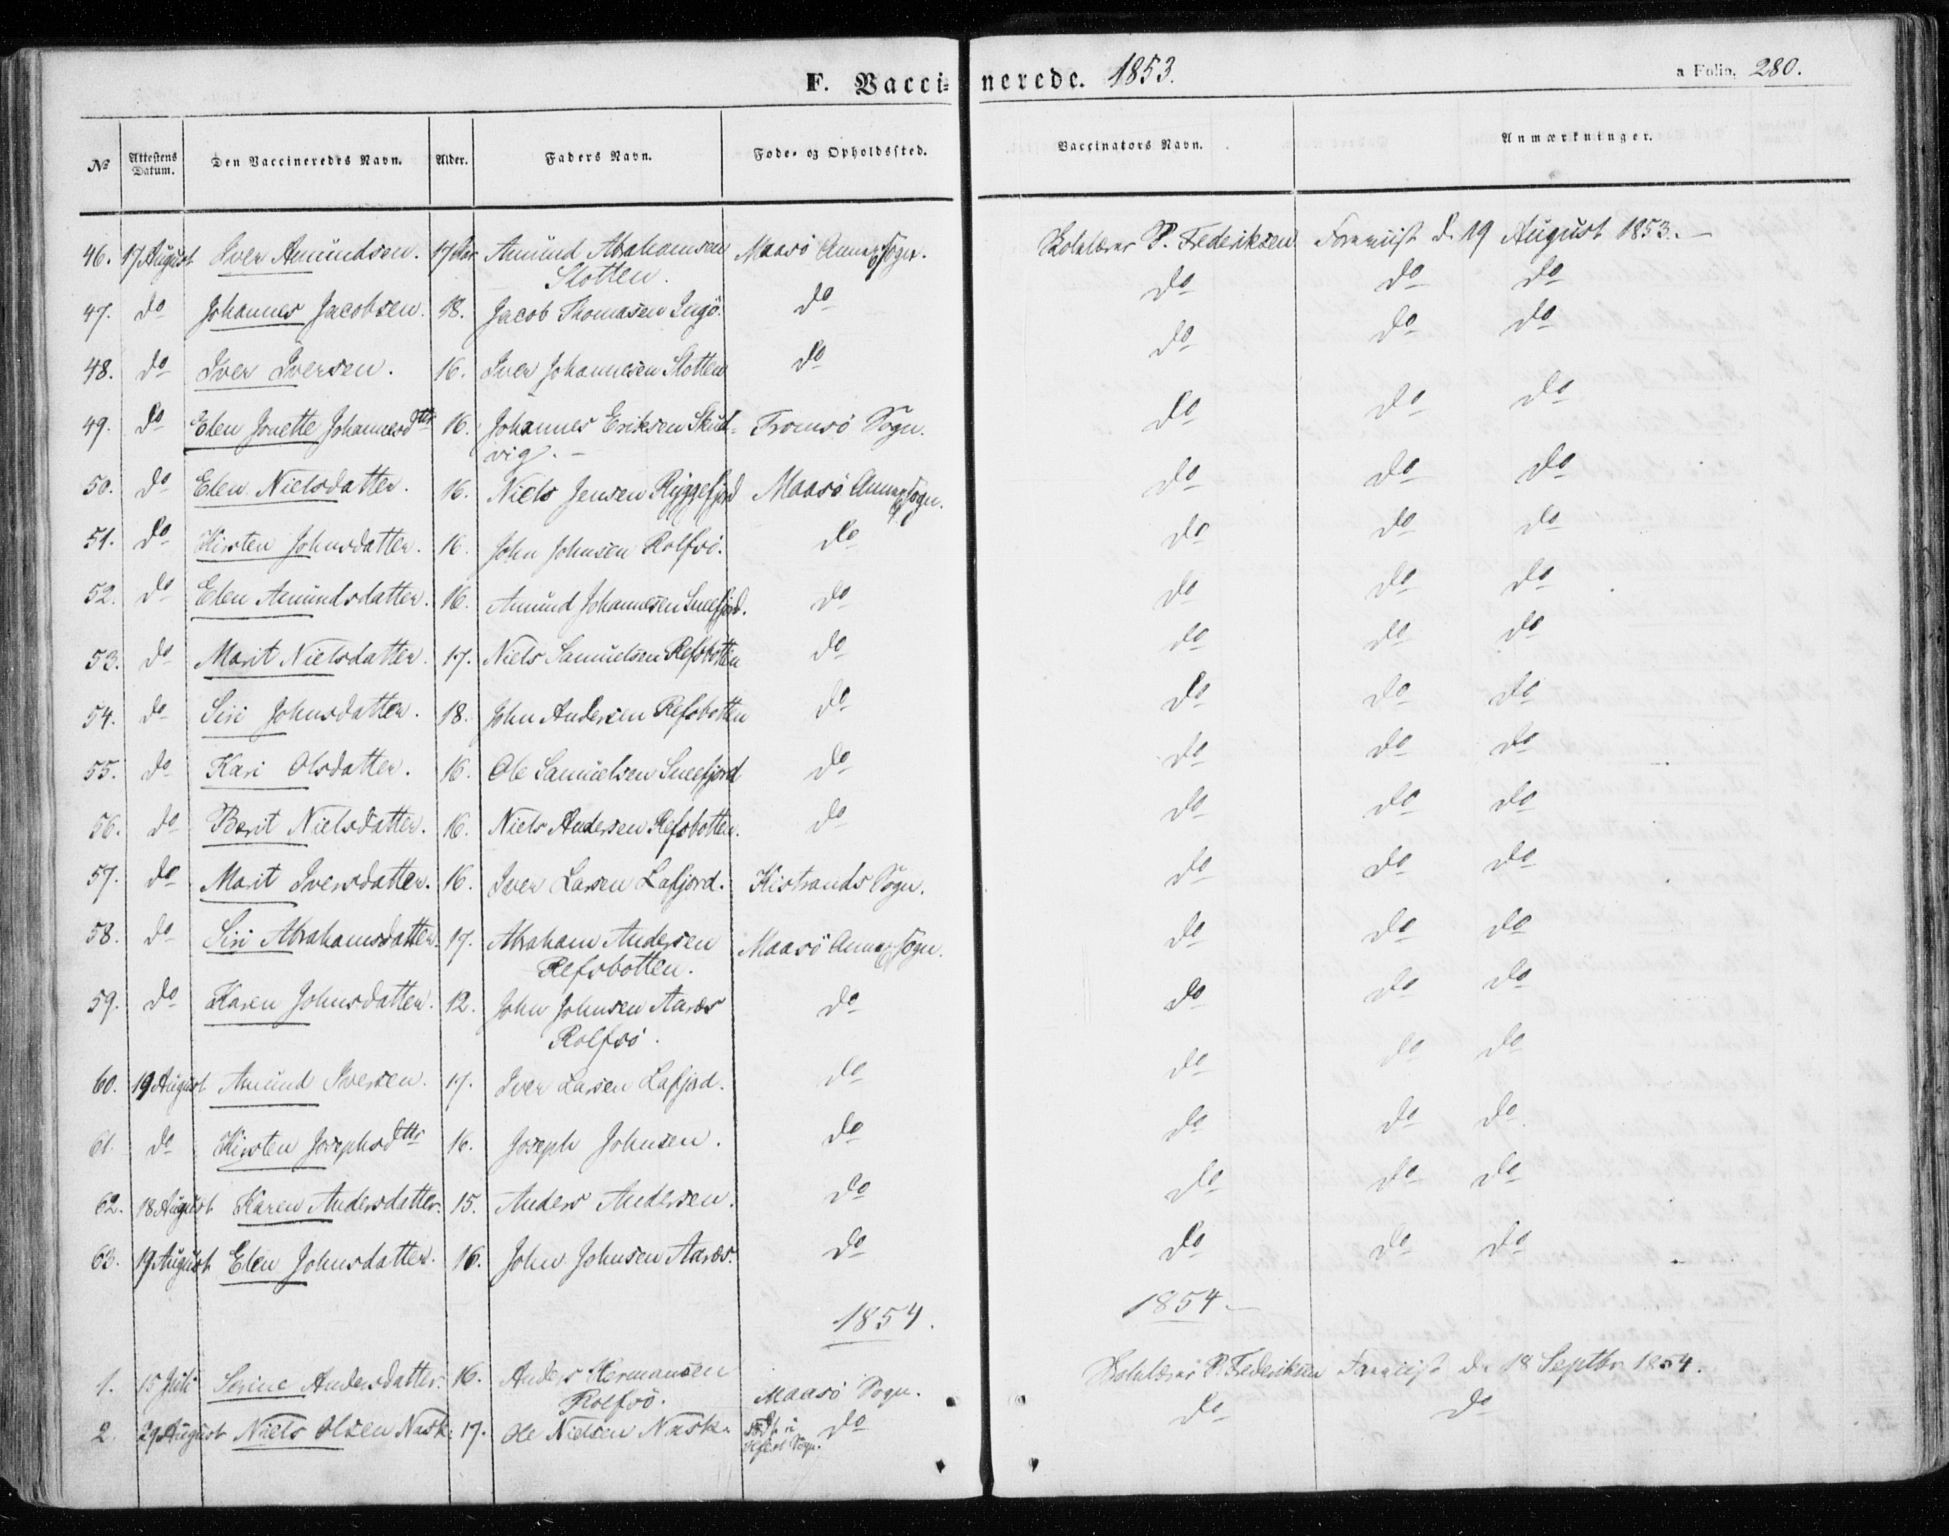 F. Vaccinerede. 1853. a Folio. 280.
No Attestens Datum. Den Vaccineredes Navn. Alder. Faders Navn. Føde- og Opholdssted. Vaccinators Navn. Anmærkninger.
46. 17 August Iver Amundsen. 17 Aar Amund Abrahamsen Maasö Annex Sogn. Skolelærer P. Frederiksen d. 19 August 1853. —
Slotten.
47. do Johannes Jacobsen. 18. Jacob Thomasen Ingö. do do do do
48. do Iver Iversen. 16. Iver Johannesen Slotten do do do do
49. do Elen Jonette Johannesdttr 16. Johannes Eriksen Skul- Tromsö Sogn. do do do
vig. —
50. do Elen Nielsdatter. 16. Niels Jensen Ryggefjord Maasö Annex Sogn. do do do
51. do Kirsten Johnsdatter. 16. John Johnsen Rolfsö. do do do do
52. do Elen Amundsdatter. 16. Amund Johannesen Sneefjord. do do do do
53. do Marit Nielsdatter. 17. Niels Samuelsen Refsbotten do do do do
54. do Siri Johnsdatter. 18. John Andersen Refsbotten do do do do
55. do Kari Olsdatter. 16. Ole Samuelsen Sneefjord do do do do
56. do Berit Nielsdatter. 16. Niels Andersen Refsbotten. do do do do
57. do Marit Iversdatter. 16. Iver Larsen Lafjord. Kistrands Sogn. do do do
58. do Siri Abrahamsdatter. 17. Abraham Andersen Maasö Annex Sogn. do do do
Refsbotten.
59. do Karen Johnsdatter. 12. John Johnsen Aarøs do do do do
Rolfsö.
60. 19 August Amund Iversen. 17. Iver Larsen Lafjord. do do do do
61. do Kirsten Josephsdttr 16. Joseph Johnsen. do do do do
62. 18 August Karen Andersdatter. 15. Anders Andersen. do do do do
63. 19 August Elen Johnsdatter. 16. John Johnsen Aarøs. do do do do
1854. 1854 —
1. 15 Juli Serine Andersdatter. 16. Anders Hermansen Maasö Sogn. Skolelærer P. Frederiksen d. 18 Septbr 1854.
Rolfsö.
2. 29 August Niels Olsen Nask: 17. Ole Nielsen Nask: Födt i Sogn. do do do